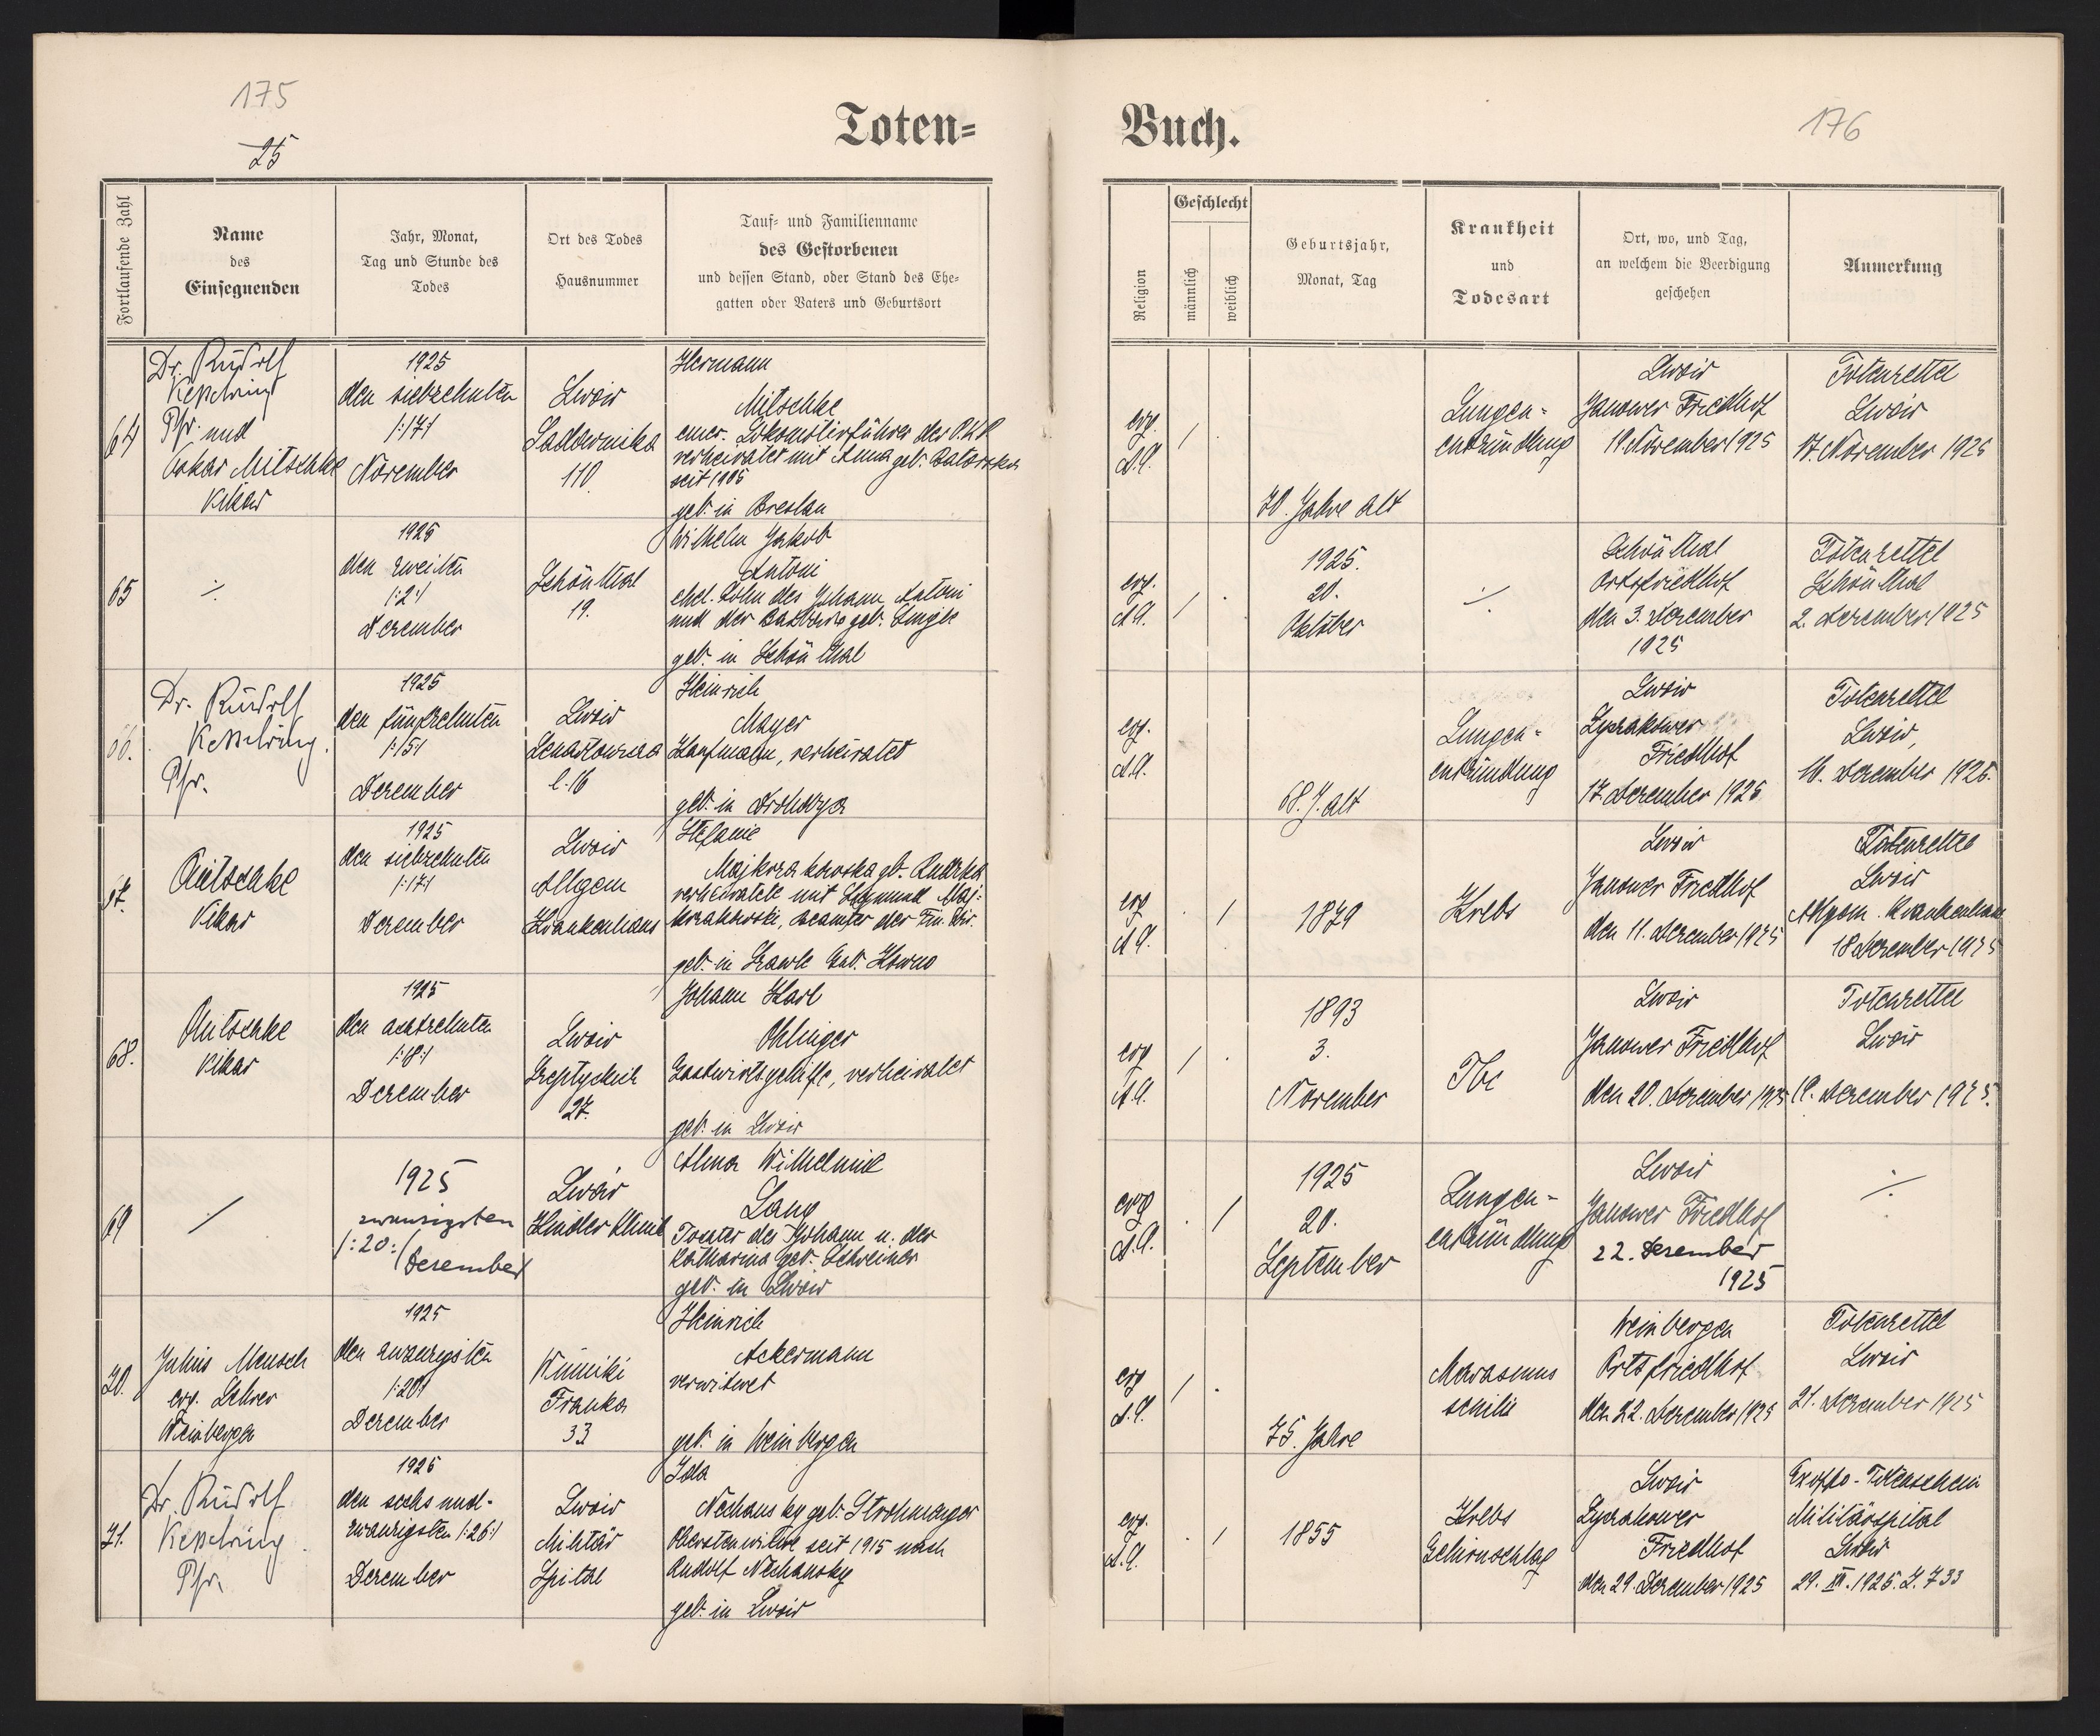 175
25
Toten=
Fortlaufende Zahl
Name
des
Einsegnenden
Jahr, Monat,
Tag und Stunde des
Todes
Ort des Todes
Hausnummer
Tauf= und Familienname
des Gestorbenen
und dessen Stand, oder Stand des Ehe=
gatten oder Vaters und Geburtsort
64
Dr. Rudolf
Kesselring
Pfr. und
Oskar Mitschke
Vikar
1925
den siebzehnten
/:17:/
November
Lwów
Sadownika
110
Hermann
Mitschke
emer. Lokomotivführer der P.K.P.
verheiratet mit Anna geb.
seit 1905
geb. in Breslau
65
1925
den zweiten
/:2:/
Dezember
Schönthal
19.
Wilhelm Jakob
Antoni
ehel. Sohn des Johann Antoni
und der Barbara geb.
geb. in Schönthal
66.
Dr. Rudolf
Kesselring.
Pfr.
1925
den fünfzehnten
/:15:/
Dezember
Lwów
l. 16
Heinrich
Mayer
Kaufmann, verheiratet
geb. in
67.
Mitschke
Vikar
1925
den siebzehnten
/:17:/
Dezember
Lwów
Allgem
Krankenhaus
Stefanie
geb.
verheiratete mit
Beamter der Fin. Dir.
geb. in Kowno
68.
Mitschke
Vikar
1925
den achtzehnten
/:18:/
Dezember
Lwów
Szeptyckich
27.
Johann Karl
Ohlinger
Gastwirtsgehilfe, verheiratet
geb. in Lwów
69
1925
zwanzigsten
/:20:/
Dezember
Lwów
Kinder Klinik
Alma Wilhelmine
Lang
Tochter des Johann u. der
Katharina geb. Schreiner
geb. in Lwów
70.
Julius Mensch
evg. Lehrer
Weinbergen
1925
den zwanzigsten
/:20:/
Dezember
Winniki
Franka
33
Heinrich
Ackermann
verwitwet
geb. in Weinbergen
71.
Dr. Rudolf
Kesselring.
Pfr.
1925
den sechs und-
zwanzigsten /:26:/
Dezember
Lwów
Militär
Spital
Ida
Nechansky geb. Strohmenger
Oberstenwitwe seit 1915 nach
Rudolf Nechansky
geb. in Lwów
Buch.
176
Religion
Geschlecht
männlich
weiblich
Geburtsjahr,
Monat, Tag
Krankheit
und
Todesart
Ort, wo, und Tag,
an welchem die Beerdigung
geschehen
Anmerkung
evg.
A.A.
70. Jahre alt
Lungen-
entzündung
Lwów
Janower Friedhof
19. November 1925
Totenzettel
Lwów
17. November 1925
evg.
A.A.
1925.
20.
Oktober
Schönthal
Ortsfriedhof
den 3. Dezember
1925
Totenzettel
Schönthal
2. Dezember 1925
evg.
A.A.
68. J. alt
Lungen-
entzündung
Lwów
Lyczakower
Friedhof
17. Dezember 1925
Totenzettel
Lwów,
16. Dezember 1925.
evg
A.A.
1879
Krebs
Lwów
Janower Friedhof
den Dezember 1925
Totenzettel
Lwów
Allgem. Krankenhaus
18 Dezember 1925
evg
A.A.
1893
3.
November
Tbc
Lwów
Janower Friedhof
den 20. Dezember 1925
Totenzettel
Lwów
19. Dezember 1925.
evg
A.A.
1925
20.
September
Lungen-
entzündung
Lwów
Janower Friedhof
22. Dezember
1925
evg
A.A.
75. Jahre
Marasmus
senilis
Weinbergen
Ortsfriedhof
den 22. Dezember 1925
Totenzettel
Lwów
21. Dezember 1925
evg.
A.A.
1855
Krebs
Gehirnschlag
Lwów
Lyczakower
Friedhof
den 29. Dezember 1925
Ex offo - Totenschein
Militärspital
Lwów
29. XII. 1925. Z. 733